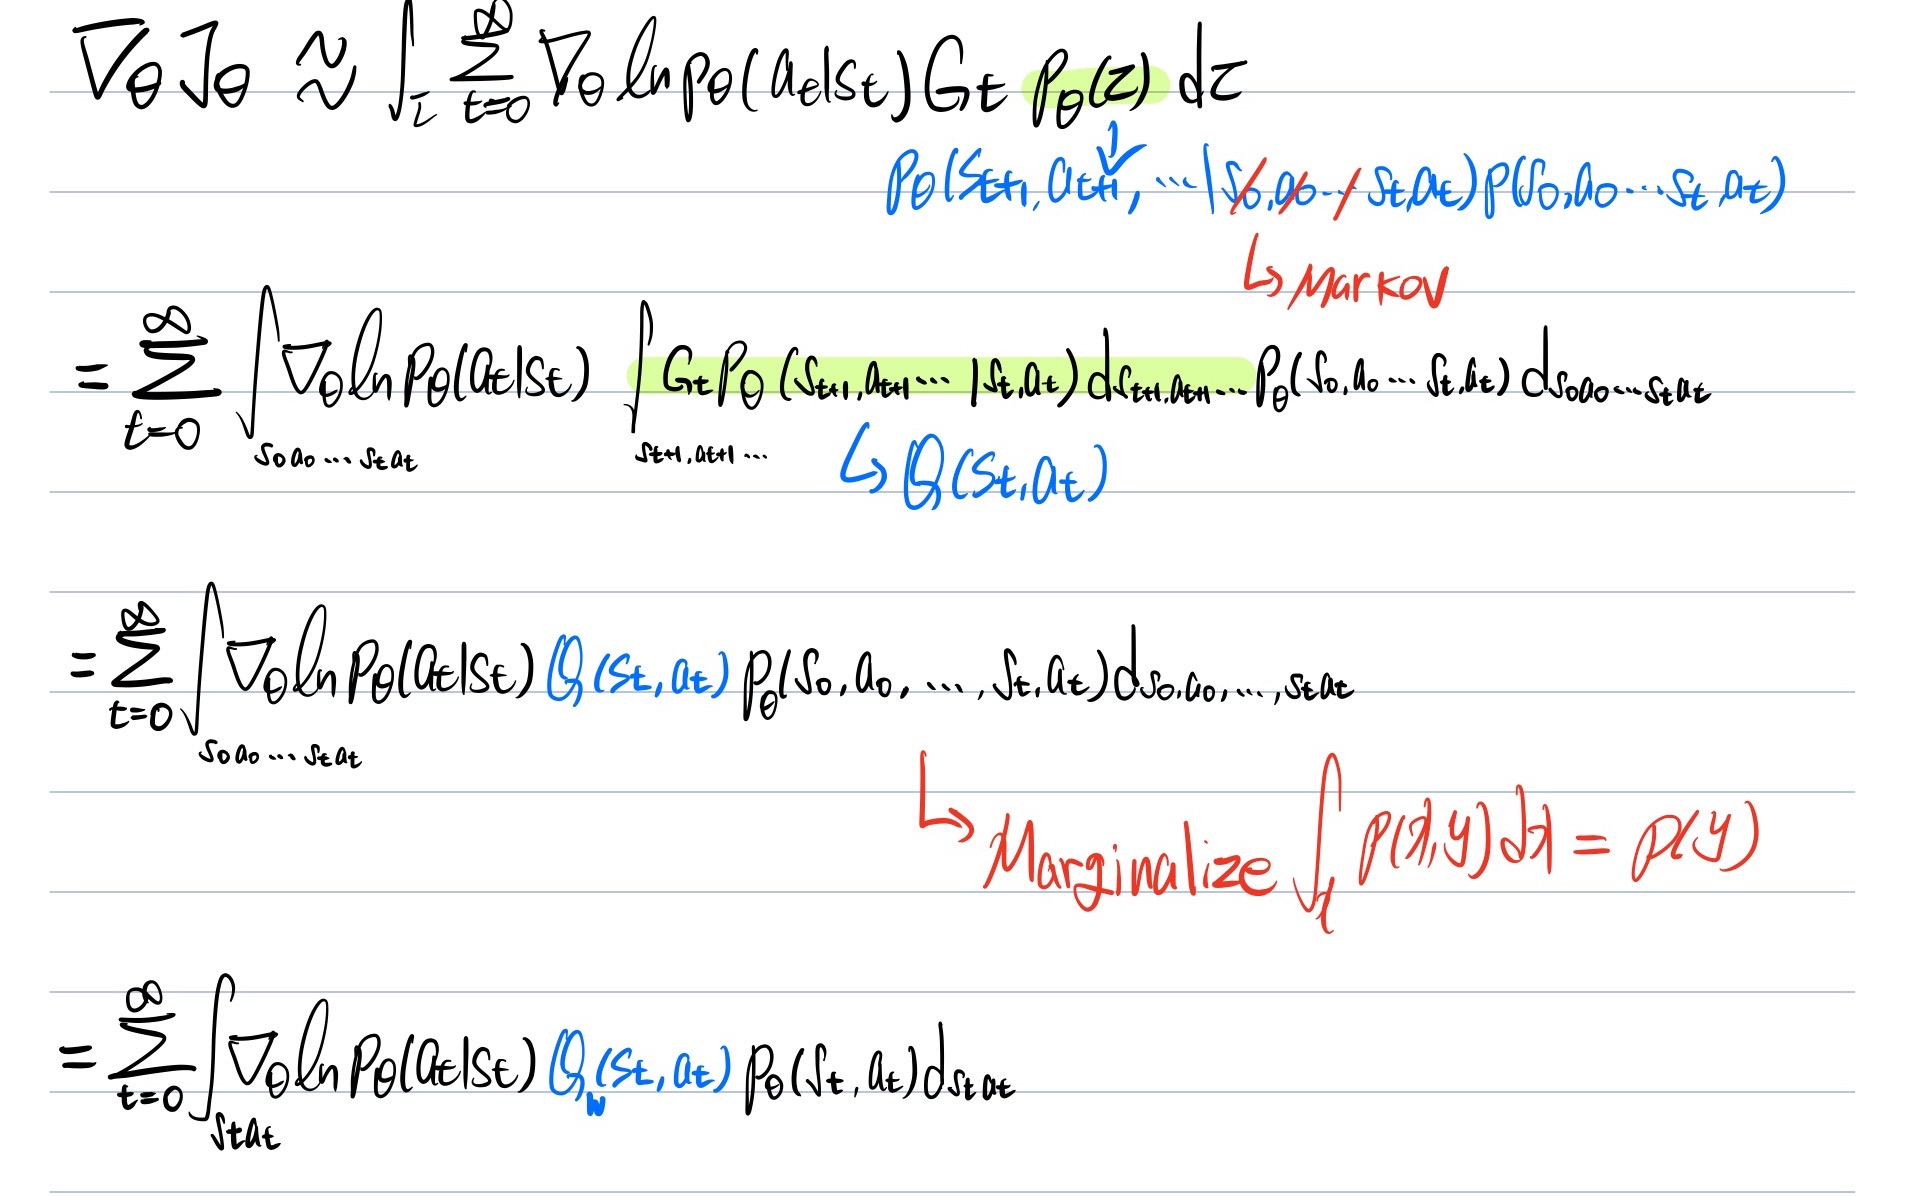 ∇θ Jθ ≈ ∫τ Σ_{t=0}^{∞} ∇θ ln pθ(at|st) Gt pθ(τ) dτ
pθ(st+1, at+1, ... | s0, a0 ... st, at) p(s0, a0 ... st, at)
↳ Markov
= Σ_{t=0}^{∞} ∫_{s0 a0 ... st at} ∇θ ln pθ(at|st) ∫_{st+1, at+1 ...} Gt pθ(st+1, at+1 ... | st, at) d_{st+1, at+1 ...} pθ(s0, a0 ... st, at) d_{s0 a0 ... st at}
↳ Q(st, at)
= Σ_{t=0}^{∞} ∫_{s0 a0 ... st at} ∇θ ln pθ(at|st) Q(st, at) pθ(s0, a0, ..., st, at) d_{s0, a0, ..., st at}
↳ Marginalize ∫x p(x, y) dx = p(y)
= Σ_{t=0}^{∞} ∫_{st at} ∇θ ln pθ(at|st) Qw(st, at) pθ(st, at) d_{st at}